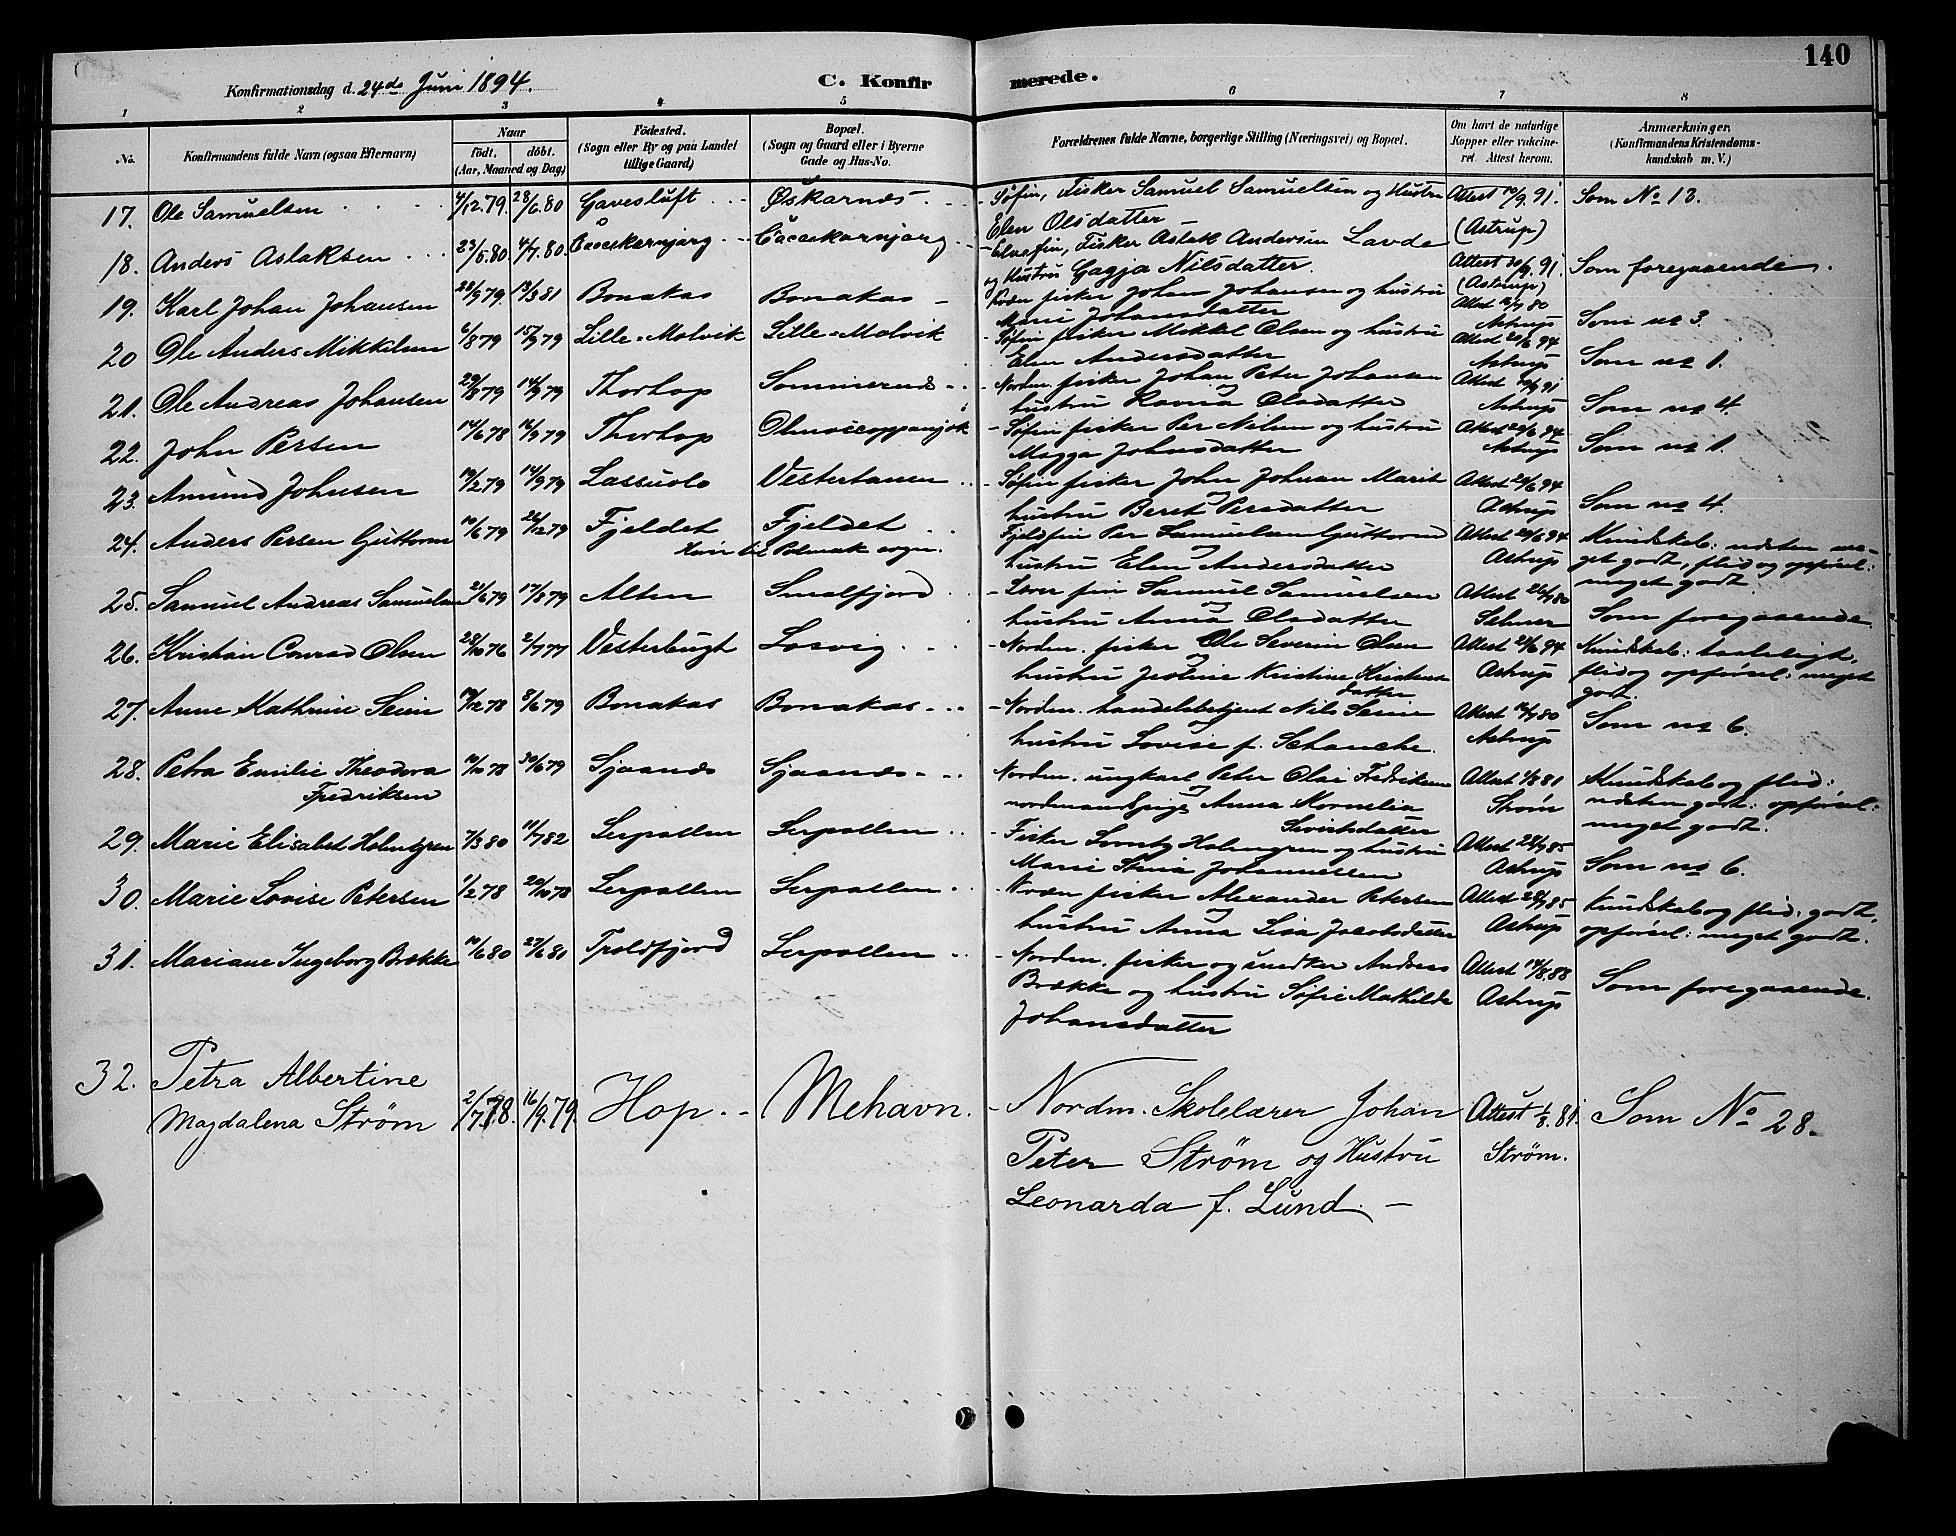 140
Konfirmationsdag d. 24de Juni 1894.
C. Konfirmerede.
1 2 3 4 5 6 7 8
No.
Konfirmandens fulde Navn (ogsaa Efternavn)
Naar
født. døbt.
(Aar, Maaned og Dag)
Födested.
(Sogn eller By og paa Landet
tillige Gaard)
Bopæl.
(Sogn og Gaard eller i Byerne
Gade og Hus-No.
Forældrenes fulde Navne, borgerlige Stilling (Næringsvei) og Bopæl.
Om havt de naturlige
Kopper eller vakcine-
ret. Attest herom.
Anmærkninger.
(Konfirmandens Kristendoms-
kundskab m. V.)
17. Ole Samuelsen 4/12.79. 28/6.80 Gavesluft Øskarnæs Søfin, Fisker Samuel Samuelsen og Hustru Attest 10/9.91. Som No 13.
Elen Olsdatter (Astrup)
18. Anders Aslaksen 23/5.80 4/7.80. Elvefin, Fisker Aslak Andersen Lavde Attest 30/9.91. Som foregaaende.
og Hustru Gagja Nilsdatter. (Astrup)
19. Karl Johan Johansen 28/9 79. 13/3 81 Bonakas Bonakas Kvæn fisker Johan Johansen og hustru Attest 80 Som no 3.
Marie Johansdatter Astrup
20 Ole Anders Mikkelsen 6/8 79 15/9 79 Lille=Molvik Lille=Molvik Søfin fisker Mikkel Olsen og hustru Attest 94 Som no 1.
Elen Andersdatter Astrup
21. Ole Andreas Johansen 29/8 79 14/9 79 Thorhop Sommernes Nordm. fisker Johan Peter Johansen Attest 91 Som no 4.
hustru Ravna Olsdatter Astrup
22. John Persen 14/6 78 16/9 79 Thorhop Søfin fisker Per Nilsen og hustru Attest 94 Som no 1.
Magga Johnsdatter Astrup
23. Amund Johnsen 19/2 79 14/9 79 Lassuolo Vestertanen Søfin fisker John Johnsen Marit Attest 94 Som no 4.
hustru Beret Persdatter Astrup
24. Anders Persen Guttorm 10/6 79 26/12 79 Fjeldet Fjeldet Fjeldfin Per Samuelsen Guttorm Attest 94 Kundskab: næsten me-
Polmak sogn. og hustru Elen Andersdatter Astrup get godt, flid og opførsel:
meget godt.
25. Samuel Andreas Samuelsen 21/6 79 17/8 79 Alten Smalfjord fin Samuel Samuelsen Attest 80 Som foregaaende.
og hustru Anna Olsdatter Selmer
26. Kristian Conrad Olsen 28/10 76 2/7 77 Vesterbugt Losvig Nordm. fisker Ole Severin Olsen Attest 94 Kundskab: taaleligt,
og hustru Kristine Kristens Astrup flid og opførsel: meget
datter godt.
27. Anne Kathrine Seim 19/12 78 8/6 79 Bonakas Bonakas Nordm. handelsbetjent Nils Seim Attest 80 Som no 6.
hustru Lovise f. Schanche. Astrup
28. Petra Emilie Theodora 10/10 78 30/6 79 Sjaanes Sjaanes Nordm. ungkarl Peter Olai Fredriksen Attest 1/8 81 Kundskab og flid:
Fredriksen og nordmandspige Anna Kornelia Strøm næsten godt: opførsel:
Sivertsdatter meget godt.
29. Marie Elisabet Holmgren 7/3 80 11/7 82 Lerpollen Lerpollen Fisker Holmgren og hustru Attest 85 Som no 6.
Marie Stina Johannessen Astrup
30. Marie Lovise Petersen 1/2 78 20/10 78 Lerpollen Lerpollen Kvæn fisker Alexander Petersen Attest 85 Kundskab og flid: godt,
og hustru Anna Lisa Jacobsdatter Astrup opførsel: meget godt.
31. Mariane Ingeborg Brække 10/6 80 27/6 81 Troldfjord Lerpollen Nordm. fisker og snedker Anders Attest 14/8.88 Som foregaaende.
Brække og hustru Søfie Mathilde Astrup
Johansdatter
32. Petra Albertine
Magdalena Strøm 2/7.78. 16/9.79. Hop. Mehavn. Nordm. Skolelærer Johan Attest 1/8.81. Som No 28.
Peter Strøm og Hustru Strøm.
Leonarda f. Lund.